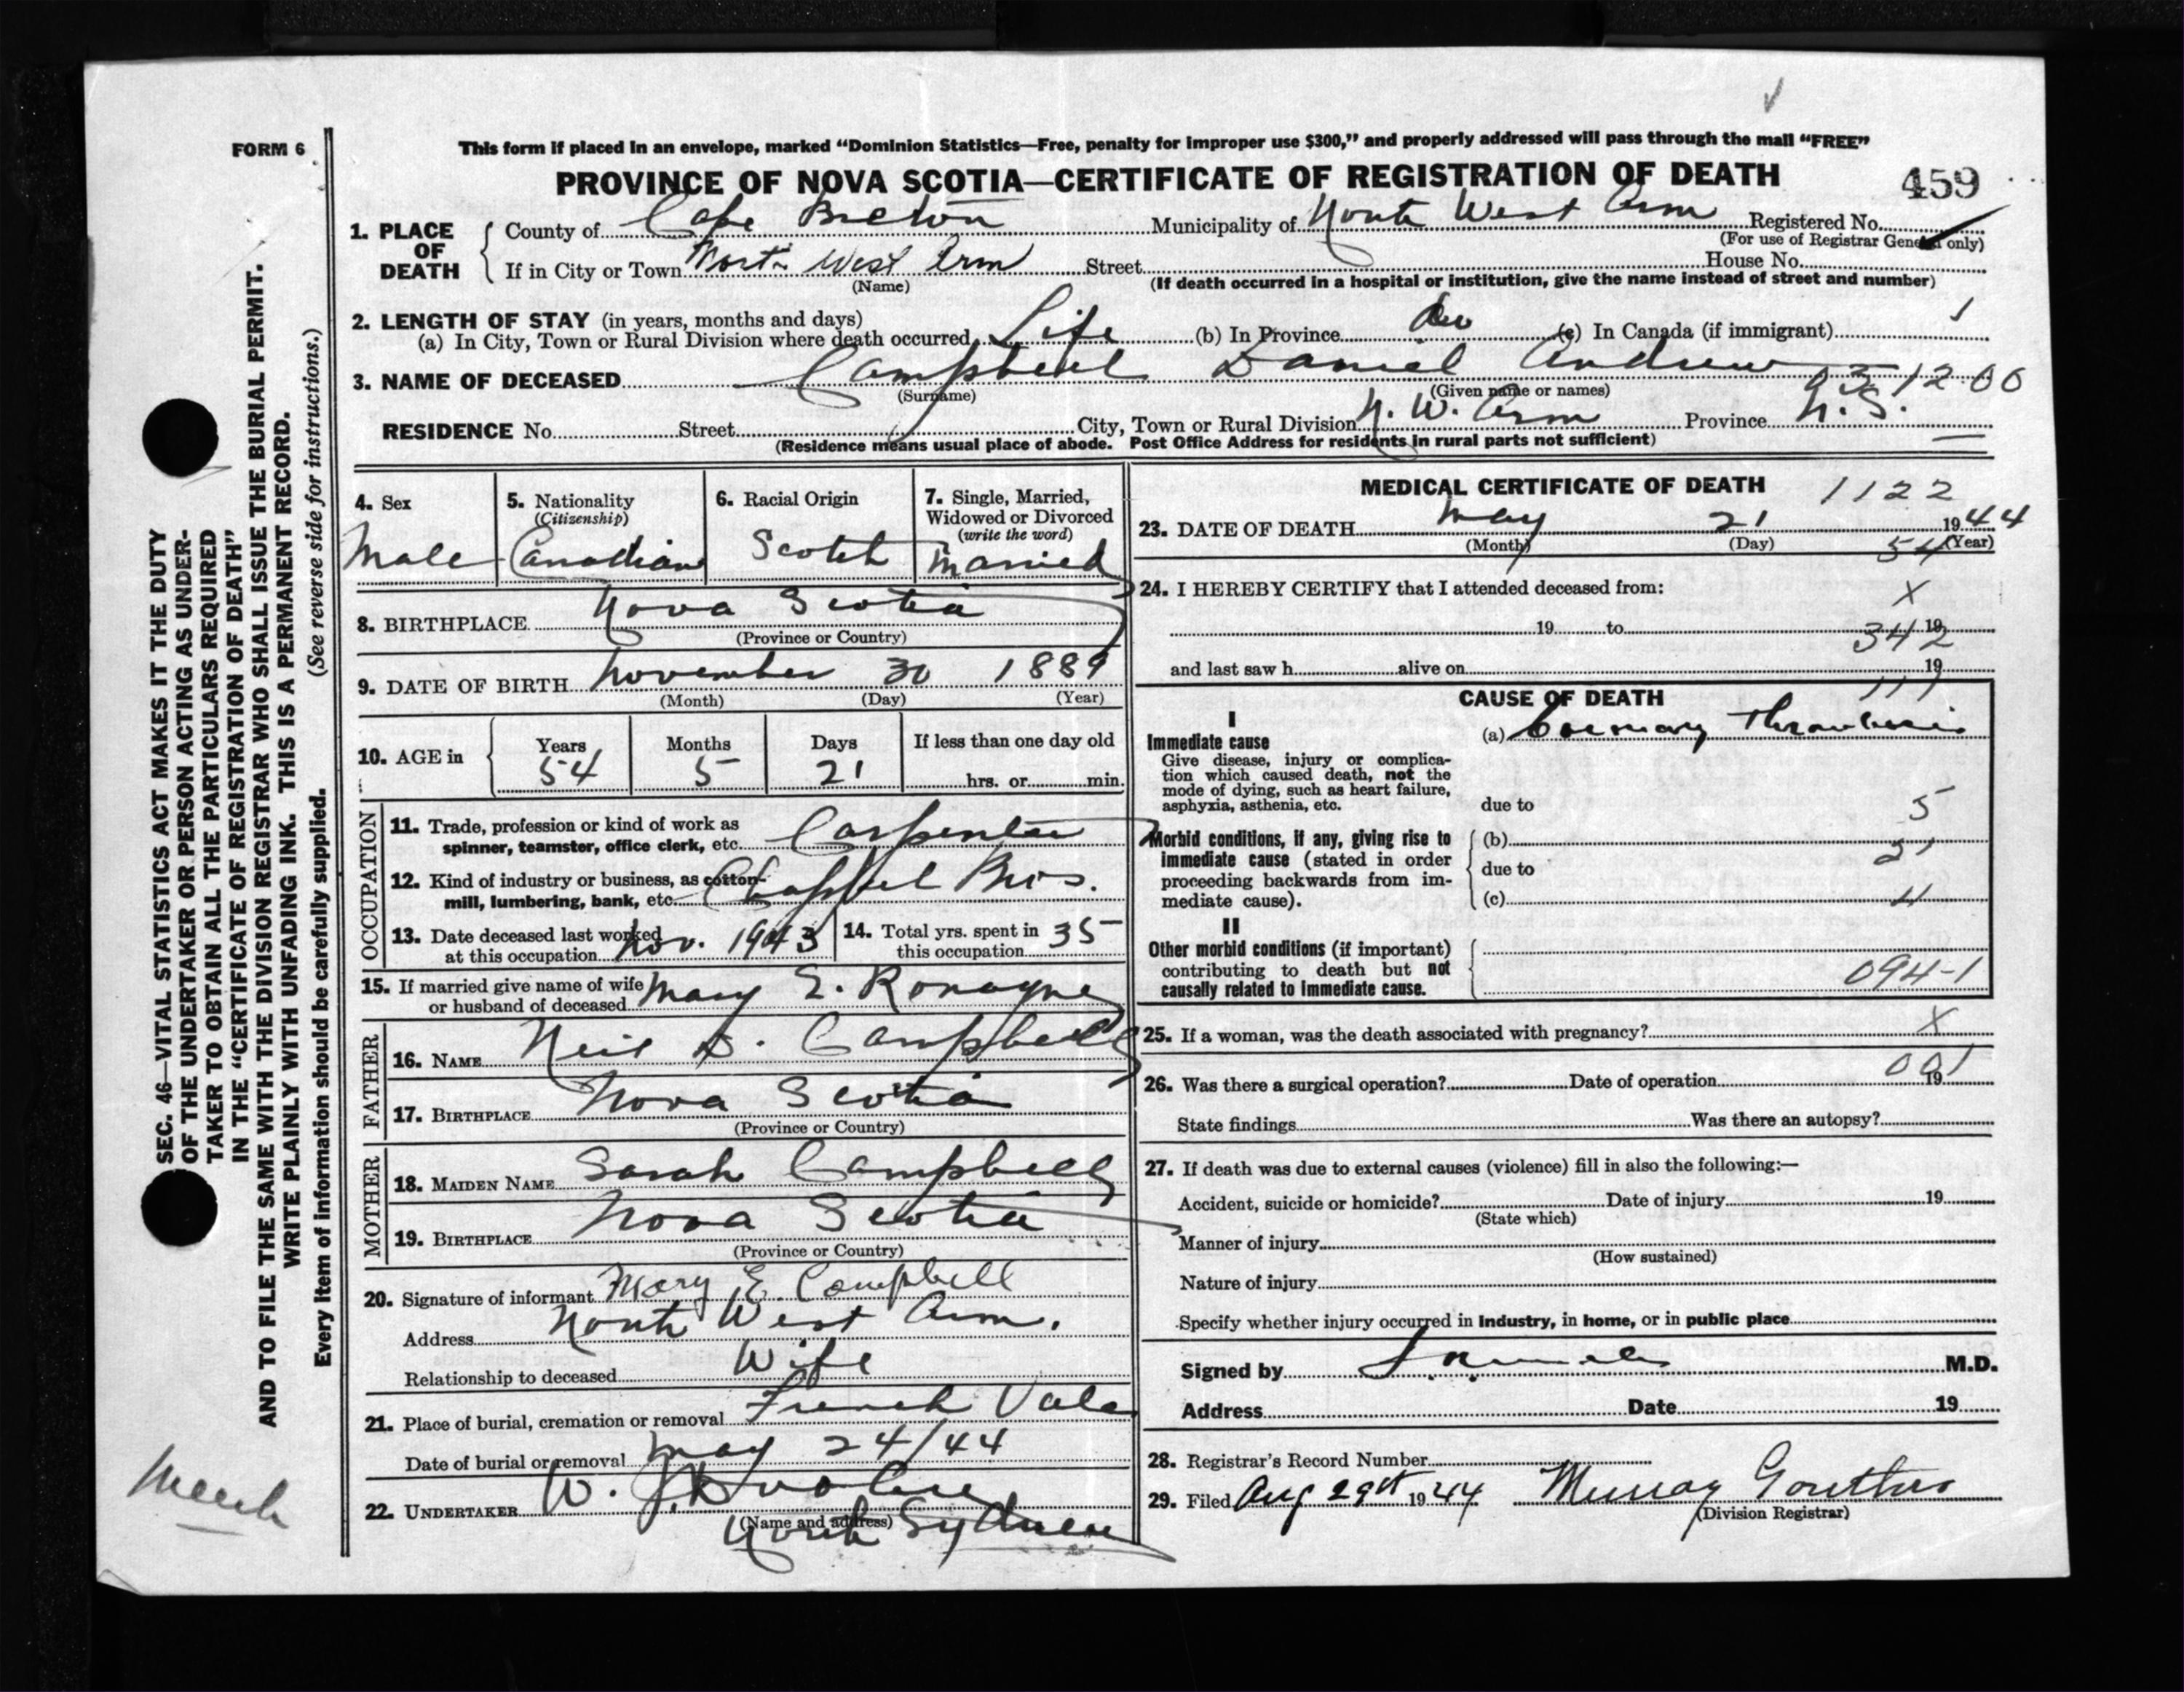 FORM 6
This form if placed in an envelope, marked "Dominion Statistics—Free, penalty for improper use $300," and properly addressed will pass through the mail "FREE"
PROVINCE OF NOVA SCOTIA—CERTIFICATE OF REGISTRATION OF DEATH 459
1. PLACE OF DEATH
County of Cape Breton Municipality of North West Arm Registered No.
(For use of Registrar General only)
If in City or Town North West Arm Street House No.
(Name) (If death occurred in a hospital or institution, give the name instead of street and number)
2. LENGTH OF STAY (in years, months and days)
(a) In City, Town or Rural Division where death occurred Life (b) In Province Do (c) In Canada (if immigrant) 1
3. NAME OF DECEASED Campbell Daniel Andrew
(Surname) (Given name or names) 951200
RESIDENCE No. Street City, Town or Rural Division N. W. Arm Province N. S.
(Residence means usual place of abode. Post Office Address for residents in rural parts not sufficient)
4. Sex
Male
5. Nationality
(Citizenship)
Canadian
6. Racial Origin
Scotch
7. Single, Married,
Widowed or Divorced
(write the word)
Married
8. BIRTHPLACE Nova Scotia
(Province or Country)
9. DATE OF BIRTH November 30 1889
(Month) (Day) (Year)
10. AGE in Years Months Days If less than one day old
54 5 21 hrs. or min.
OCCUPATION
11. Trade, profession or kind of work as
spinner, teamster, office clerk, etc. Carpenter
12. Kind of industry or business, as cotton-
mill, lumbering, bank, etc. Chappel Bros.
13. Date deceased last worked
at this occupation Nov. 1943
14. Total yrs. spent in
this occupation 35
15. If married give name of wife
or husband of deceased Mary E. Ronayne
FATHER
16. NAME Neil D. Campbell
17. BIRTHPLACE Nova Scotia
(Province or Country)
MOTHER
18. MAIDEN NAME Sarah Campbell
19. BIRTHPLACE Nova Scotia
(Province or Country)
20. Signature of informant Mary E. Campbell
Address North West Arm.
Relationship to deceased Wife
21. Place of burial, cremation or removal French Vale
Date of burial or removal May 24/44
22. UNDERTAKER W. J.
(Name and address)
North Sydney
MEDICAL CERTIFICATE OF DEATH 1122
23. DATE OF DEATH May 21 1944
(Month) (Day) (Year)
54
24. I HEREBY CERTIFY that I attended deceased from:
X
19 to 19
342
and last saw h alive on 19
CAUSE OF DEATH
I
Immediate cause
Give disease, injury or complica-
tion which caused death, not the
mode of dying, such as heart failure,
asphyxia, asthenia, etc.
(a) Coronary Thrombosis
due to 5
Morbid conditions, if any, giving rise to
immediate cause (stated in order
proceeding backwards from im-
mediate cause).
(b)
due to 21
(c)
II
Other morbid conditions (if important)
contributing to death but not
causally related to immediate cause.
094-1
25. If a woman, was the death associated with pregnancy? X
26. Was there a surgical operation? Date of operation 19
001
State findings Was there an autopsy?
27. If death was due to external causes (violence) fill in also the following:—
Accident, suicide or homicide? Date of injury 19
(State which)
Manner of injury
(How sustained)
Nature of injury
Specify whether injury occurred in industry, in home, or in public place
Signed by M.D.
Address Date 19
28. Registrar's Record Number
29. Filed Aug 29th 1944 Murray
(Division Registrar)
SEC. 46—VITAL STATISTICS ACT MAKES IT THE DUTY
OF THE UNDERTAKER OR PERSON ACTING AS UNDER-
TAKER TO OBTAIN ALL THE PARTICULARS REQUIRED
IN THE "CERTIFICATE OF REGISTRATION OF DEATH"
AND TO FILE THE SAME WITH THE DIVISION REGISTRAR WHO SHALL ISSUE THE BURIAL PERMIT.
WRITE PLAINLY WITH UNFADING INK. THIS IS A PERMANENT RECORD.
Every item of information should be carefully supplied. (See reverse side for instructions.)